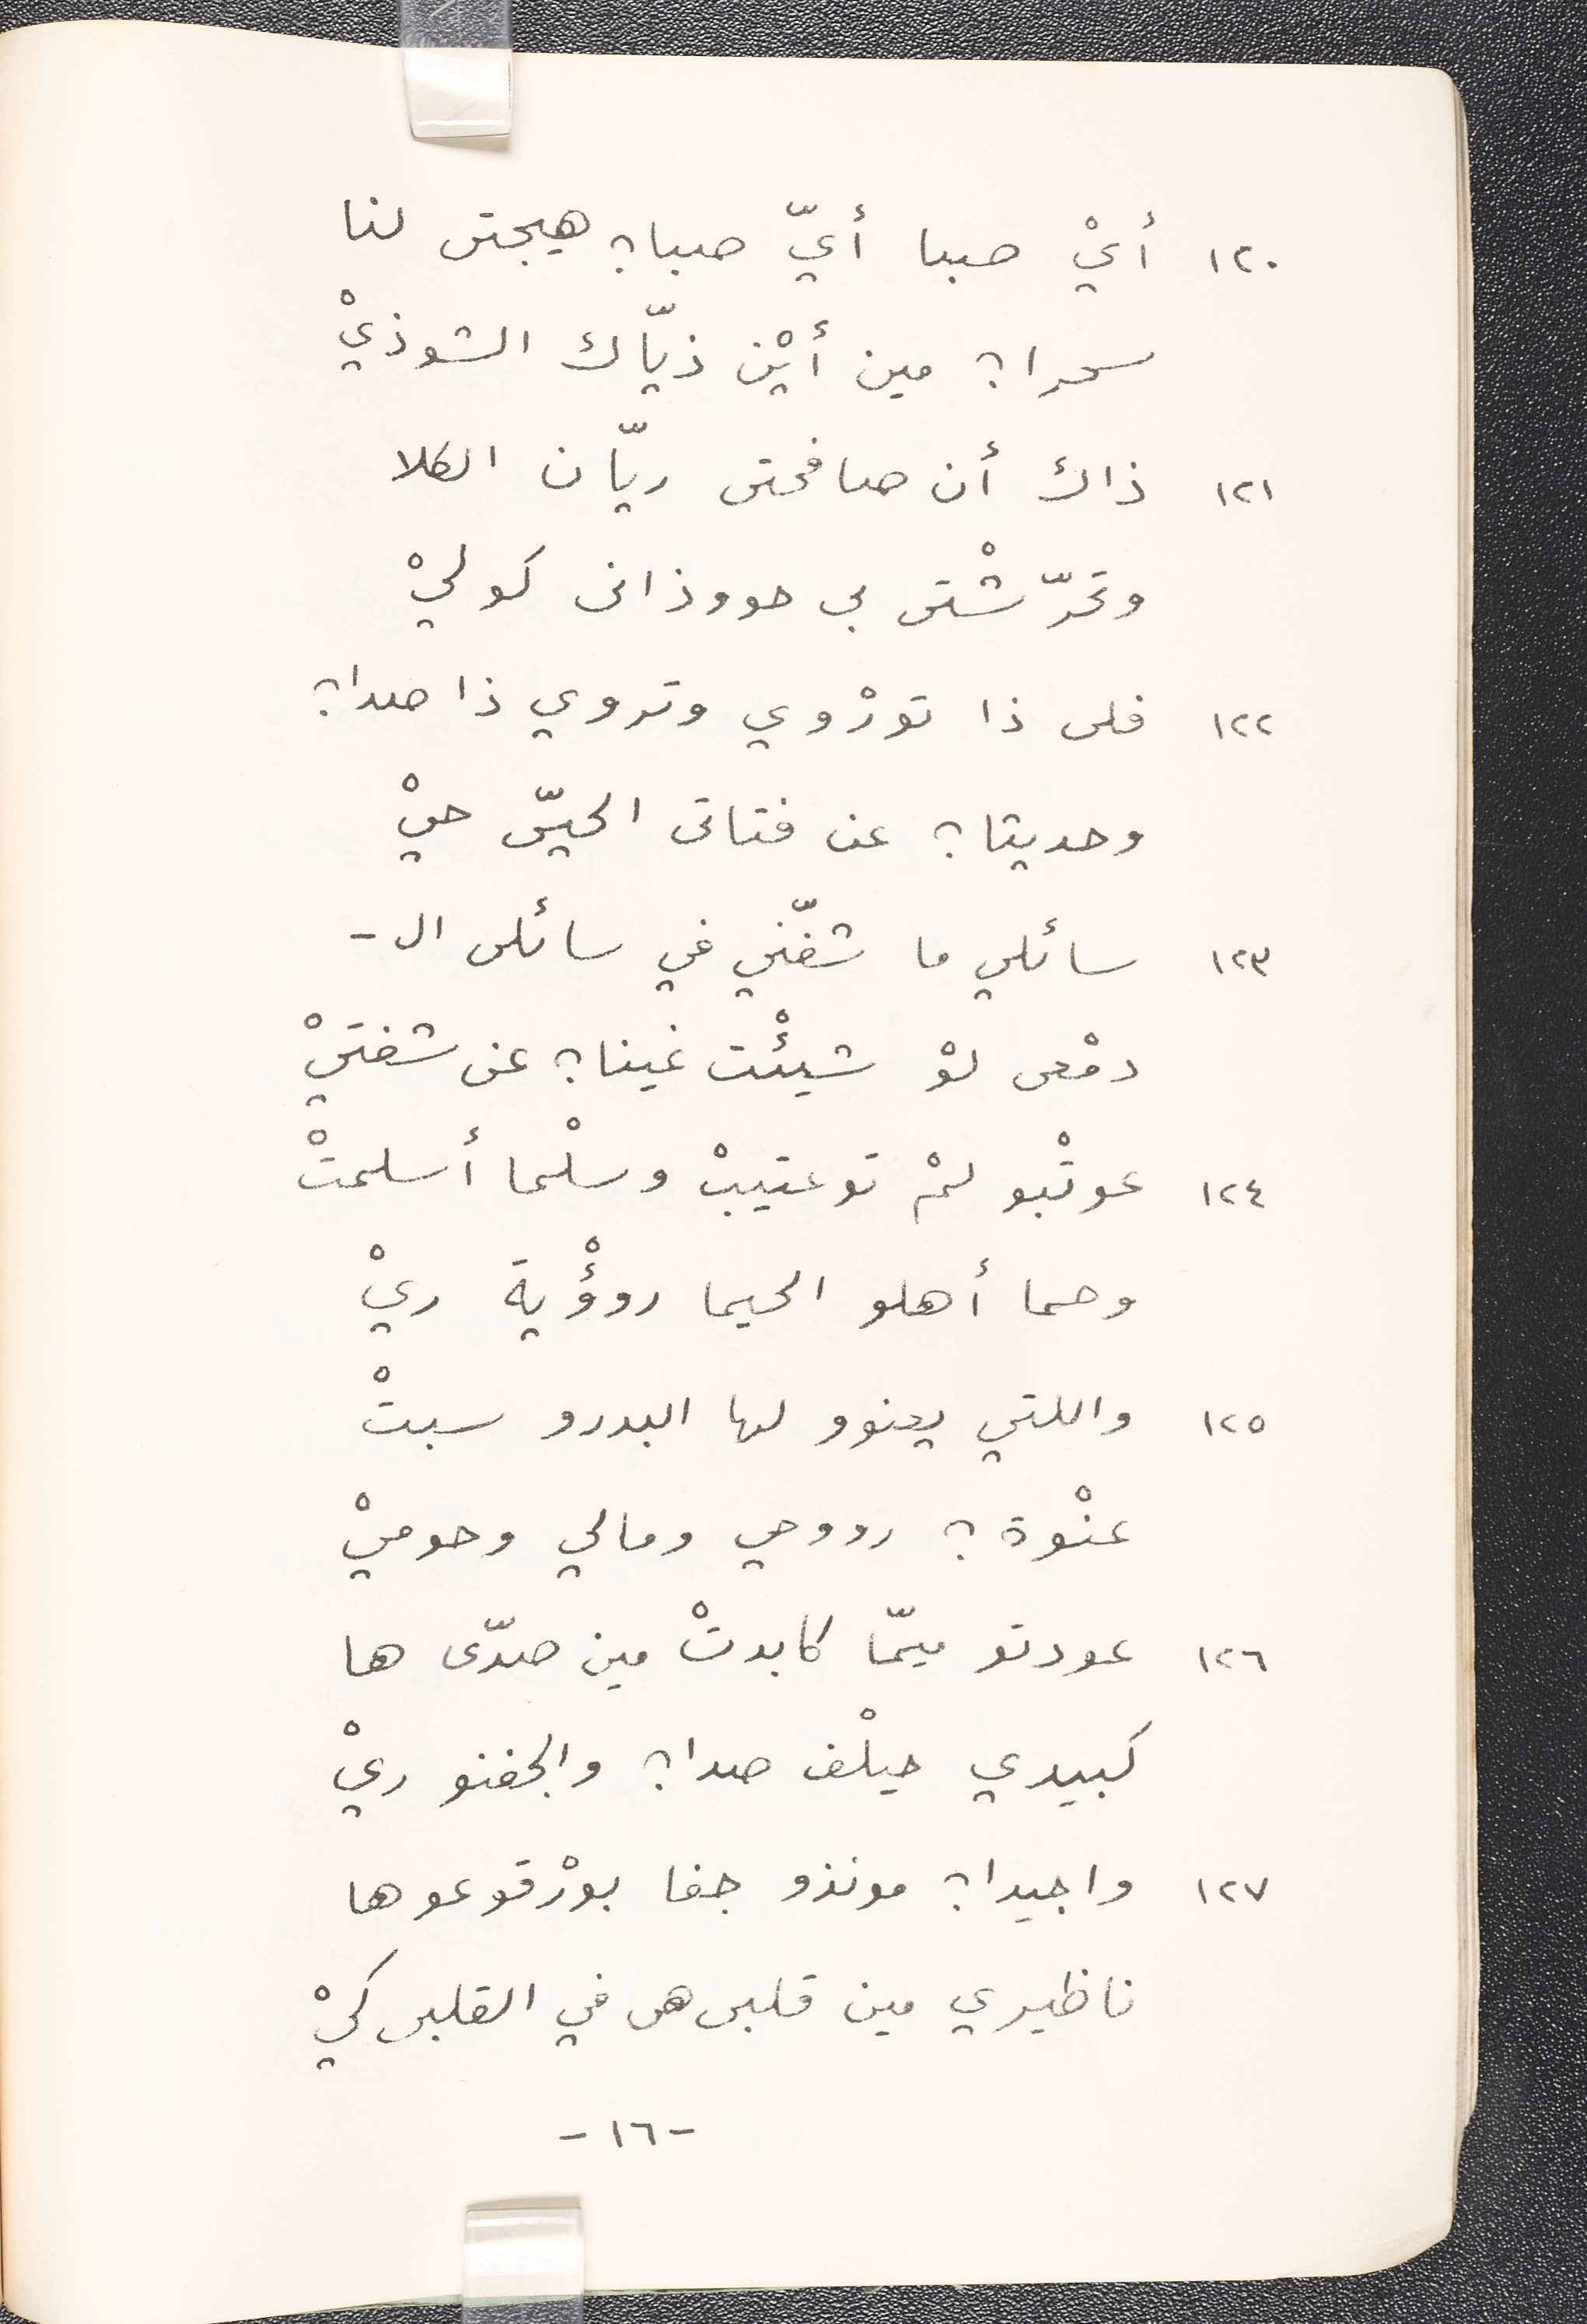 ١٢٠ أيْ صبا أيّ صبا؟ هيجتى لنا
سحرا؟ مين أيْن ذيّاك الشوذيْ
١٢١ ذاك أن صافحتى ريّان الكلا
وتحرّشْتى بى حووذانى كوليْ
١٢٢ فلى ذا تورْوي وتروي ذا صدا؟
وحديتا؟ عن فتاتى الحيّى حيْ
١٢٣ سائلي ما شفّني في سائلى ال -
دمْعى لوْ شيئْت غينا؟ عن شفتيْ
١٢٤ عوتْبو لمْ توعتيبْ وسلْما أسلمتْ
وحما أهلو الحيما روؤْية ريْ
١٢٥ واللتي يعنوو لها البدرو سبتْ
عنْوة؟ رووحي ومالي وحوميْ
١٢٦ عودتو ميمّا كابدتْ مين صدّى ها
كبيدي حيلْف صدا؟ والجفنو ريْ
١٢٧ واجيدا؟ مونذو جفا بورْقوعوها
ناظيري مين قلبى هى في القلبى كيْ
- ١٦ -